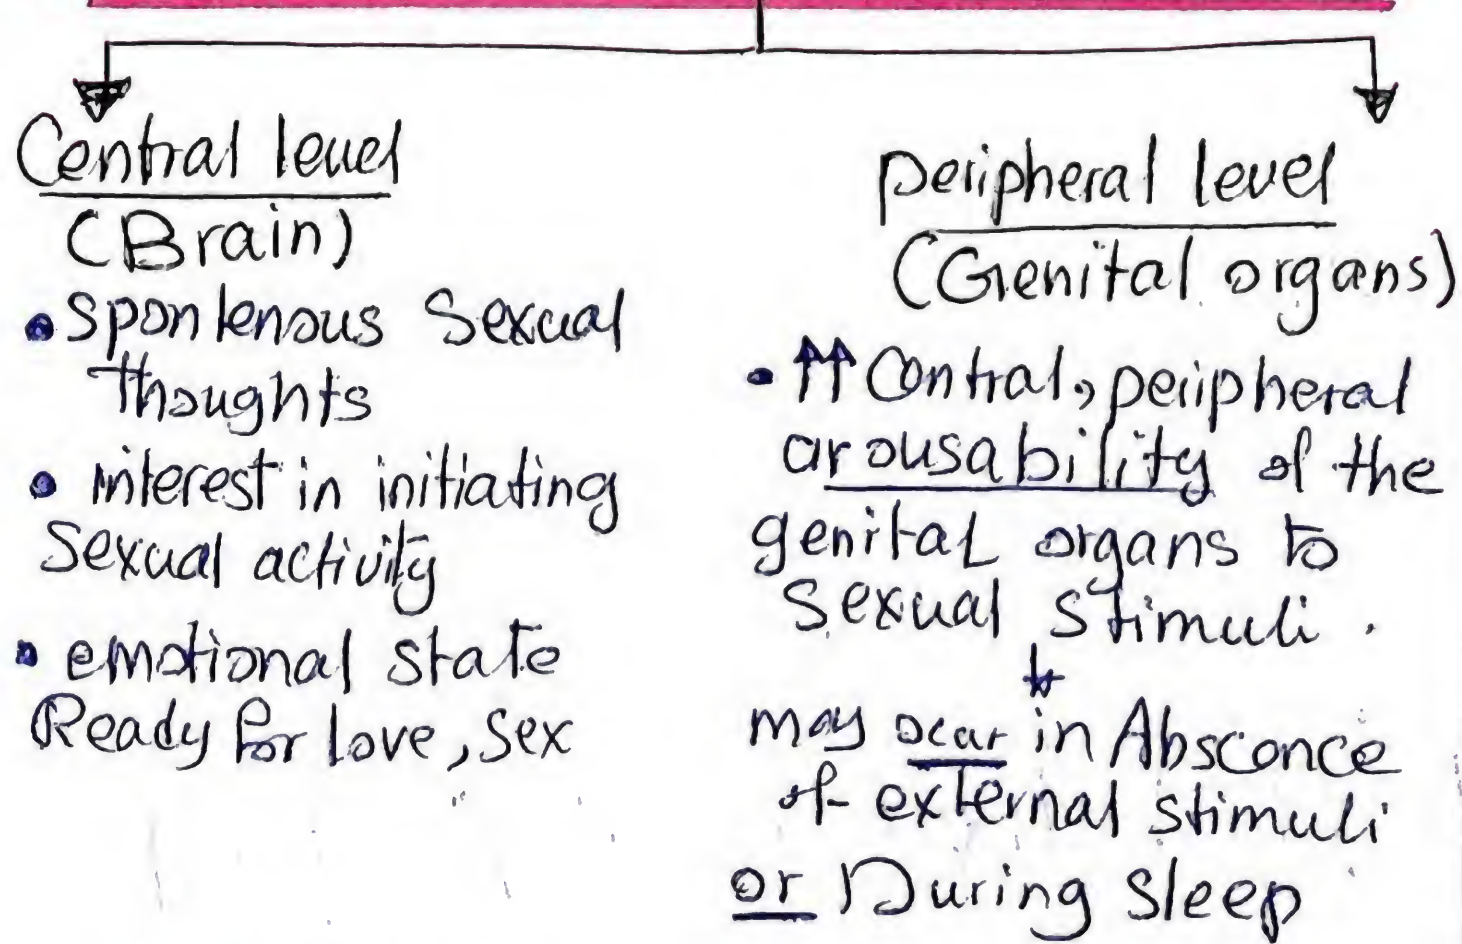 Central level
(Brain)
• spontenous Sexual
Thoughts
• interest in initiating
Sexual activity
• emotional state
Ready for love, sex
peripheral level
(Genital organs)
• ↑↑ Contral, peripheral
arousability of the
genital organs to
Sexual stimuli.
↓
may ocar in Absconce
of external stimuli
or During sleep